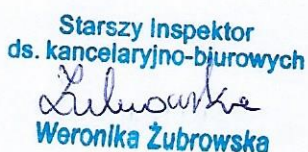 Starszy Inspektor
ds. kancelaryjno-biurowych
Żubrowska
Weronika Żubrowska